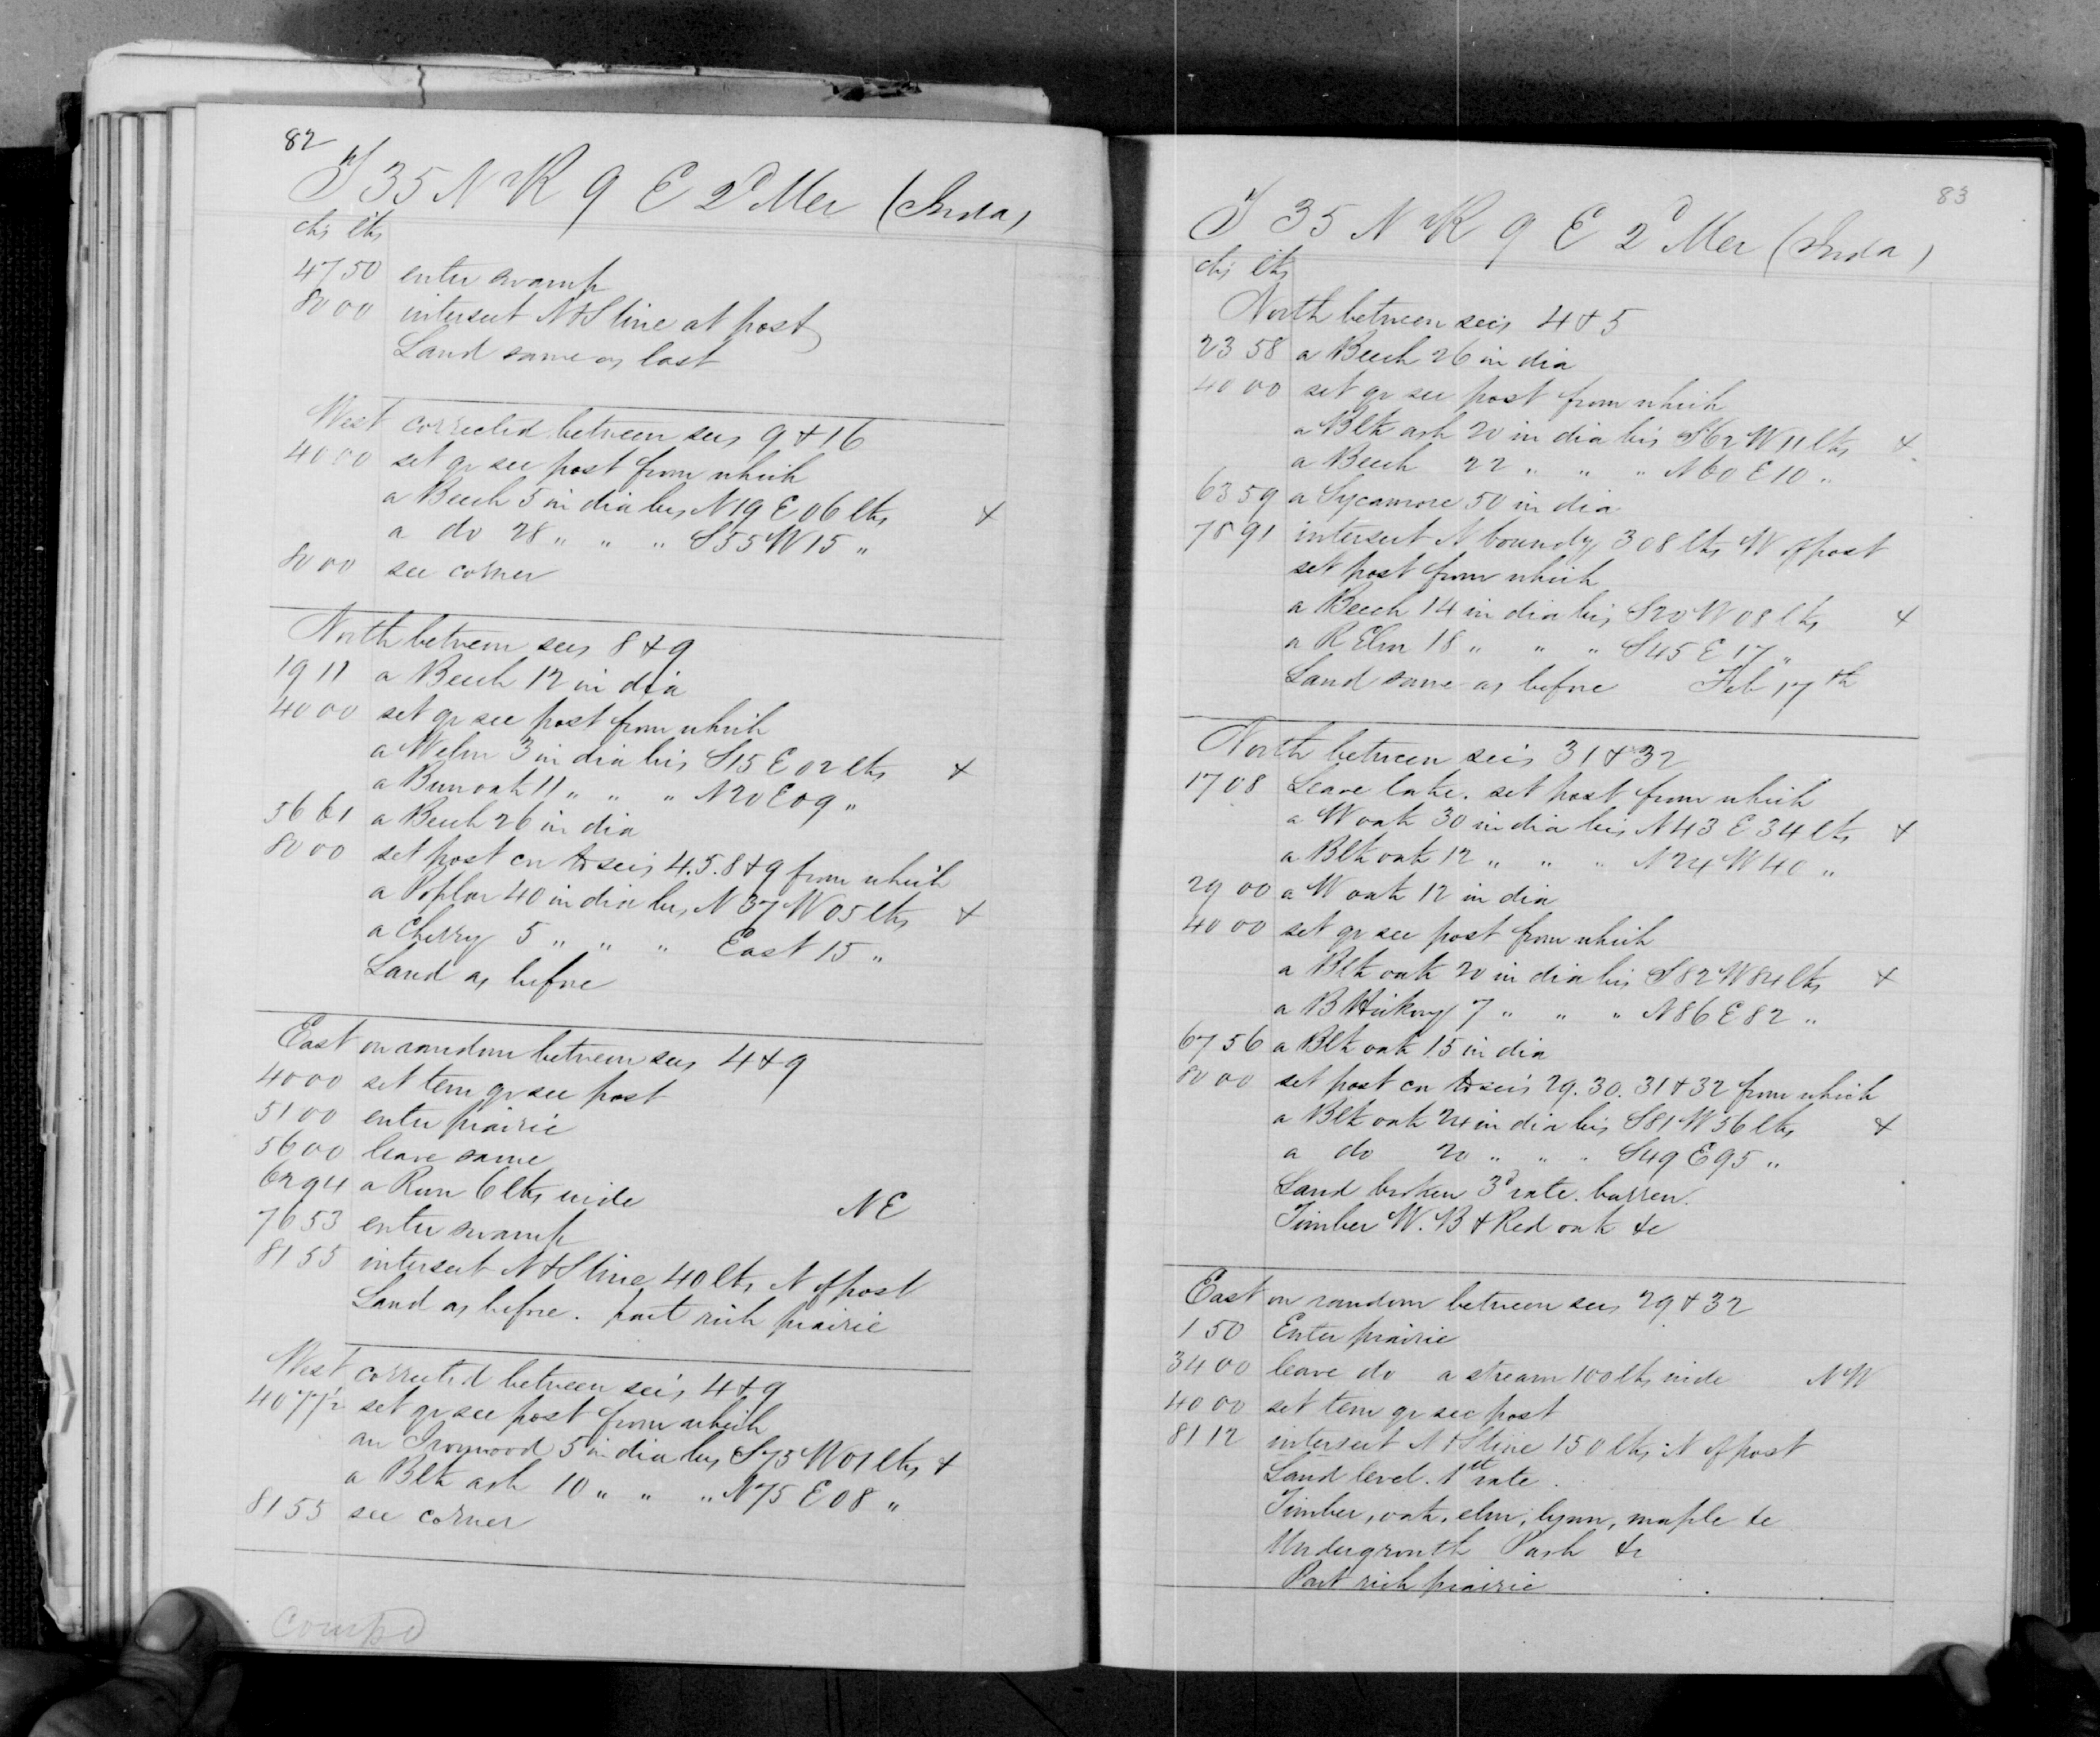 82
T 35 N R 9 E 2d Mer (Inda)
chs lks
47 50 enter swamp
80 00 intersect N & S line at post
Land same as last
West corrected between secs 9 & 16
40 00 set qr sec post from which
a Beech 5 in dia brs N 19 E 06 lks +
a do 28 " " " S 55 W 15 "
80 00 sec corner
North between secs 8 & 9
19 11 a Beech 12 in dia
40 00 set qr sec post from which
a W elm 3 in dia brs S 15 E 02 lks +
a Burr oak 11 " " " N 20 E 09 "
56 61 a Beech 26 in dia
80 00 set post cn to secs 4. 5. 8 & 9 from which
a Poplar 40 in dia brs N 37 W 05 lks +
a Cherry 5 " " " East 15 "
Land as before
East on random between secs 4 & 9
40 00 set tem qr sec post
51 00 enter prairie
56 00 leave same
62 94 a Run 6 lks wide NE
76 53 enter swamp
81 55 intersect N & S line 40 lks N of post
Land as before. part rich prairie
West corrected between secs 4 & 9
40 77½ set qr sec post from which
an Ironwood 5 in dia brs S 75 W 01 lks +
a Blk ash 10 " " " N 75 E 08 "
81 55 sec corner
Compd
83
T 35 N R 9 E 2d Mer (Inda)
chs lks
North between secs 4 & 5
23 58 a Beech 26 in dia
40 00 set qr sec post from which
a Blk ash 20 in dia brs S 62 W 11 lks +
a Beech 22 " " " N 60 E 10 "
63 59 a Sycamore 50 in dia
78 91 intersect N boundy 308 lks W of post
set post from which
a Beech 14 in dia brs S 20 W 08 lks +
a R Elm 18 " " " S 45 E 17 "
Land same as before Feb 17th
North between secs 31 & 32
17 08 Leave lake. set post from which
a W oak 30 in dia brs N 43 E 34 lks +
a Blk oak 12 " " " N 24 W 40 "
29 00 a W oak 12 in dia
40 00 set qr sec post from which
a Blk oak 20 in dia brs S 82 W 84 lks +
a B Hickory 7 " " " N 86 E 82 "
67 56 a Blk oak 15 in dia
80 00 set post cn to secs 29. 30. 31 & 32 from which
a Blk oak 24 in dia brs S 81 W 56 lks +
a do 20 " " " S 49 E 95 "
Land broken 3d rate. barren.
Timber W. B & Red oak &c
East on random between secs 29 & 32
1 50 Enter prairie
34 00 leave do a stream 100 lks wide NW
40 00 set tem qr sec post
81 12 intersect N & S line 150 lks N of post
Land level. 1st rate.
Timber, oak, elm, lynn, maple &c
Undergrowth P ash &c
Part rich prairie